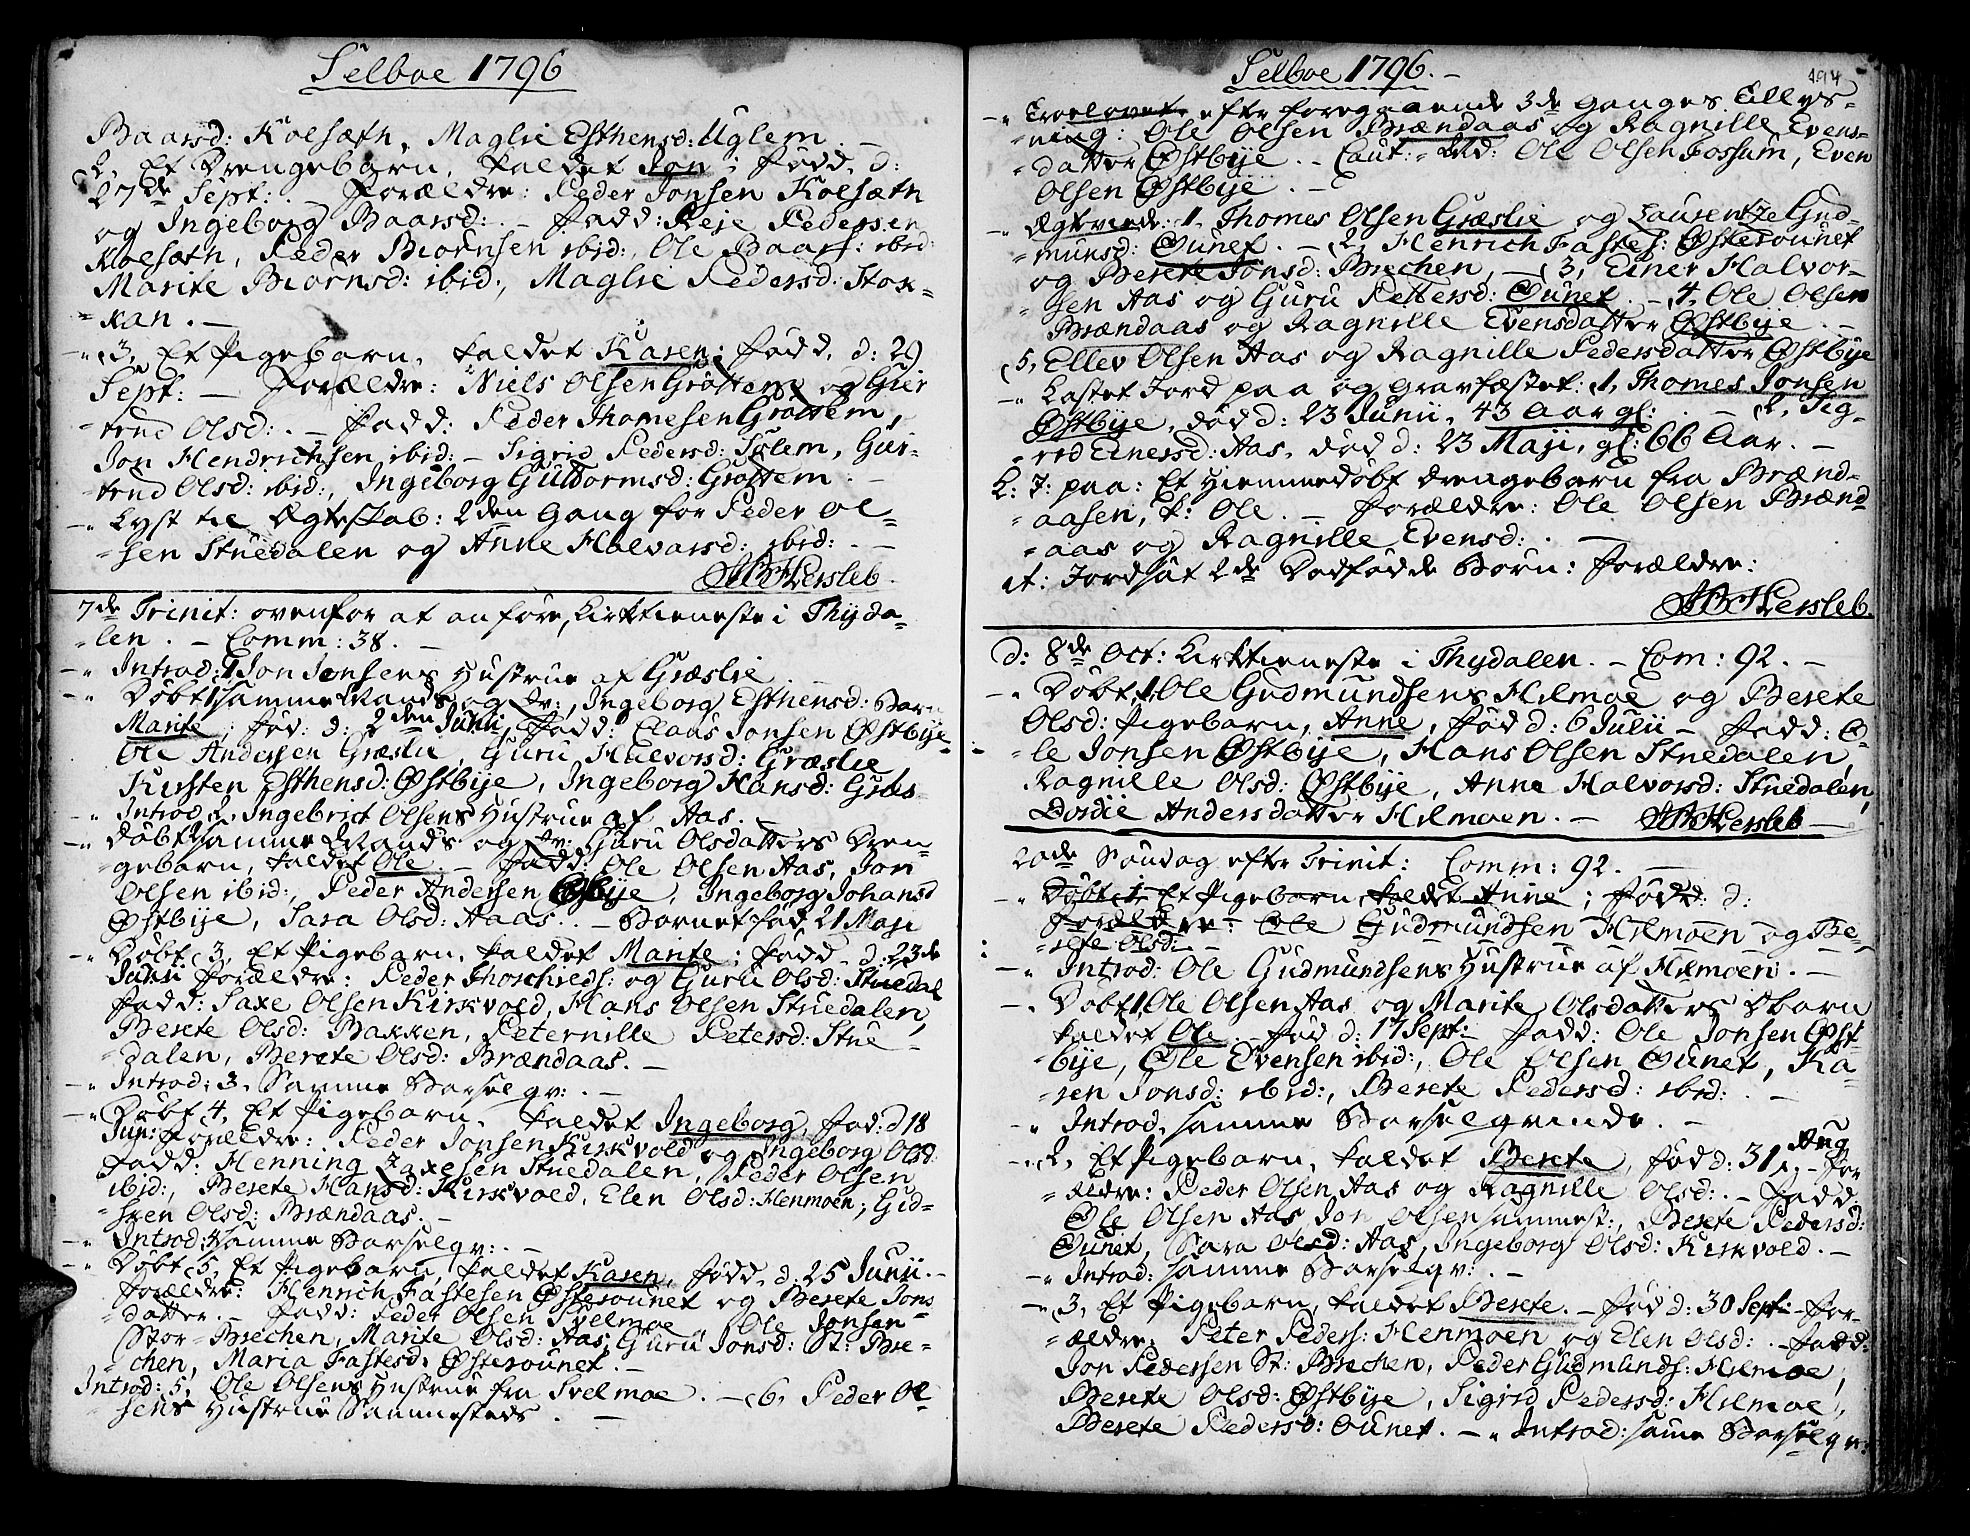 Selboe 1796
Baarsd: Kolsæth, Maglie Esthensd: Uglem. –
2, Et Drengebarn, kaldet Jon; fødd, d:
27de Sept: . – Forældre: Peder Jonsen Kolsæth
og Ingeborg Baarsd: . – Fadd: Peje Pedersen
Kolsæth, Peder Biørnsen ibid:, Ole Baars: ibid:
Marite Biørnsd: ibid:, Maglie Pedersd: Stok-
-kan. –
-" 3, Et Pigebarn, kaldet Karen; fødd, d: 29
Sept: – Forældre: Niels Olsen Grøttem og Gur
trud Olsd: . – Fadd: Peder Thomesen Grøttem,
Jon Hendrichsen ibid: – Sigrid Pedersd: Tølem, Gur-
-trud Olsd: ibid:, Ingeborg Guttormsd: Grøttem. –
-" Lyst til Ægteskab: 2den Gang for Peder Ol-
-sen Stuedalen og Anne Halvorsd: ibid: . –
Hersleb.
7de Trinit: ovenfor at anføre, Kirktieneste i Thyda-
-len. – Comm: 38. –
-" Introd: 1, Jon Jonsens Hustrue af Græslie
-" Døbt 1, samme Mands og Qv:, Ingeborg Esthensd: Barn
Marite; fød: d: 2den Junii, Fadd: Claus Jonsen Østbye
Ole Andersen Græslie, Guru Halvorsd: Græslie
Kirsten Esthensd: Østbye, Ingeborg Hansd: Græs-
-" Introd 2, Ingebrict Olsens Hustrue af Aas. –
-" Døbt samme Mands og Qv: Guru Olsdatters Dren-
-gebarn, kaldet Ole. – Fadd: Ole Olsen Aas, Jon
Olsen ibid:, Peder Andersen Østbye, Ingeborg Johansd
Østbye, Sara Olsd: Aaas. – Barnet fød 21 Maji
-" Døbt 3, Et Pigebarn, kaldet Marite; fødd, d: 23de
Junii Forældre: Peder Thorchields: og Guru Olsd: Stuedal
Fadd: Saxe Olsen Kirkvold, Hans Olsen Stuedalen,
Berete Olsd: Bakken, Peternille Petersd: Stue
-dalen, Berete Olsd: Brændaas. –
-" Introd: 3, Samme Barselqv: . –
-" Døbt 4, Et Pigebarn, kaldet Ingeborg, fød: d 18
Jun: Forældre: Peder Jonsen Kirkvold og Ingeborg Olsd:
Fadd: Henning Saxesen Stuedalen, Peder Olsen
ibid:, Berete Hansd: Kirkvold, Elen Olsd: Henmoen, Gud-
-" Introd: samme Barselqv: . –
-" Døbt 5, Et Pigebarn, kaldet Karen, fødd, d: 25 Junii. –
Forældre: Henrich Fastesen Østerounet og Berete Jons
-datter. – Fadd: Peder Olsen Svelmoe, Ole Jonsen
Stor-Brechen, Marite Olsd: Aas, Guru Jonsd: St: Bre-
-chen, Maria Fastesd: Østerounet. –
Introd: 5, Ole Olsens Hustrue fra Svelmoe. – 6, Peder Ol-
-sens Hustrue Sammesteds. –
Selboe 1796. –
194
-" Troelovet efter foregaaende 3de Ganges Tillys-
-ning: Ole Olsen Brændaas og Ragnille Evens-
-datter Østbye. – Caut: Ole Olsen Fossum, Even
Olsen Østbye. –
-" Ægteviede: 1, Thomes Olsen Græslie og Laurentze Gud-
-munsd: Øunet. – 2, Henrich Fastes: Østerounet
og Berete Jonsd: Brechen, – 3, Einer Halvor-
-sen Aas og Guru Pettersd: Ounet. – 4, Ole Olsen
Brændaas og Ragnille Evensdatter Østbye. –
5, Ellev Olsen Aas og Ragnille Pedersdatter Østbye
-" Kastet Jord paa og gravfæstet: 1, Thomes Jonsen
Østbye, død d: 23 Junii, 43 Aar gl: . – 2, Sig-
-rid Einersd: Aas, død d: 23 Maji, gl: 66 Aar. –
K: J: paa: Et Hiemmedøbt Drengebarn fra Brænd-
-aasen, k: Ole. – Forældre: Ole Olsen Brænd-
-aas og Ragnille Evensd: . –
it: Jordsat 2de Dødfødde Børn: Forældre:
Hersleb.
d: 8de Oct: Kirktieneste i Thydalen. – Com: 92. –
-" Døbt 1, Ole Gudmundsens Hilmoe og Berete
Olsd: Pigebarn, Anne, fød d: 6 Julii – Fadd: O-
-le Jonsen Østbye, Hans Olsen Stuedalen,
Ragnille Olsd: Østbye, Anne Halvorsd: Stuedalen,
Dordie Andersdatter Hilmoen. – Hersleb –
20de Søndag efter Trinit: Comm: 92. –
-" Døbt 1, Et Pigebarn kaldet Anne; fødd: d:
Forældre: Ole Gudmundsen Hilmoen og Be-
-rete Olsd: –
-" Introd: Ole Gudmundsens Hustrue af Hilmoen. –
-" Døbt 1, Ole Olsen Aas og Marite Olsdatters Dbarn
kaldet Ole – fød d: 17 Sept: Fadd: Ole Jonsen Øst-
-bye, Ole Evensen ibid:, Ole Olsen Ounet, Ka-
-ren Jonsd: ibid:, Berete Pedersd: ibid: . –
-" Introd, samme Barselqvinde. –
-" 2, Et Pigebarn, kaldet Berete, fød d: 31 Aug – For
-ældre: Peder Olsen Aas og Ragnille Olsd: . – Fadd:
Ole Olsen Aas, Jon Olsen sammest:, Berete Pedersd:
Ounet, Sara Olsd: Aas, Ingeborg Olsd: Kirkvold. –
-" Introd: samme Barselqv: . –
-" 3, Et Pigebarn, kaldet Berete. – fød d: 30 Sept: – For-
-ældre: Peter Peders: Henmoen og Elen Olsd: . – Fadd:
Jon Pedersen St: Brechen, Peder Gudmunds: Hilmoe,
Berete Olsd: Østbye, Sigrid Pedersd: Hilmoe,
Berete Pedersd: Ounet. – " Introd: same Barselqv: